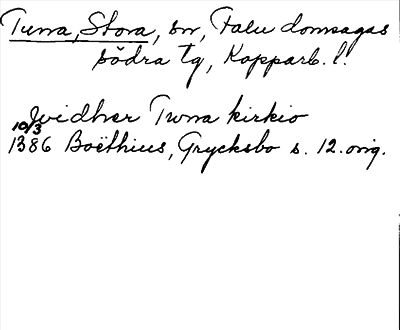 Tuna, Stora, sn, Falu domsagas
södra tg, Kopparb. l.
widher Twna kirkio
10/3
1386 Boëthius, Grycksbo s. 12. orig.